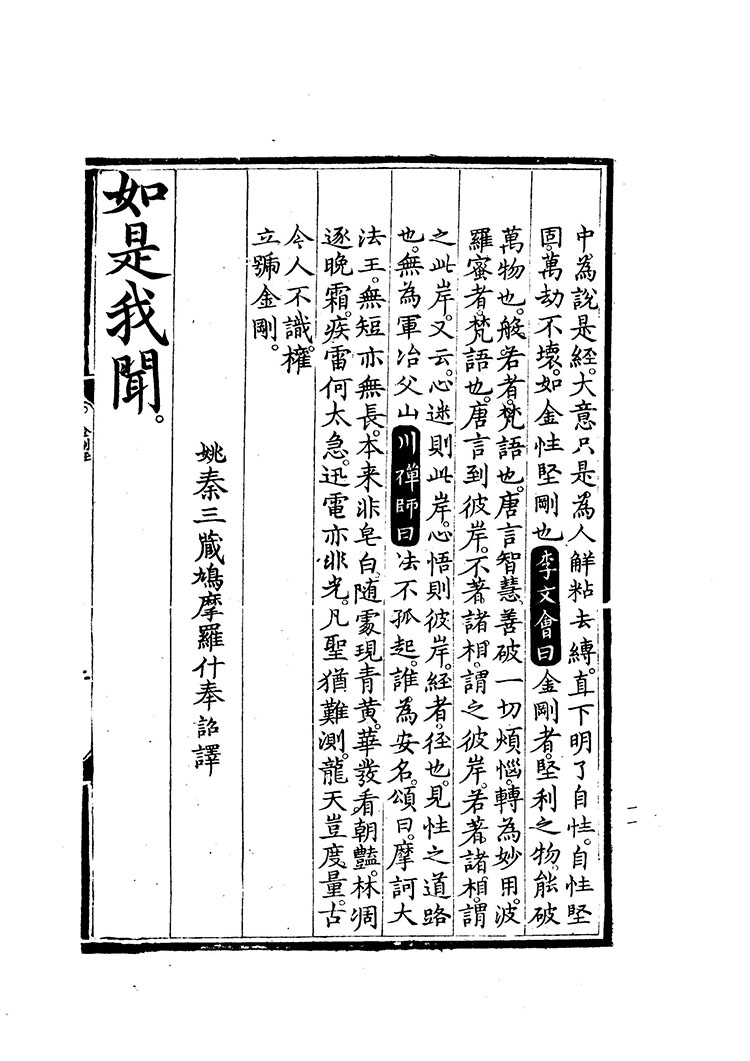 中為說是經。大意只是為人解粘去縛。直下明了自性。自性堅
固。萬劫不壞。如金性堅剛也李文會曰金剛者。堅利之物。能破
萬物也。般若者。梵語也。唐言智慧善破一切煩惱。轉為妙用。波
羅蜜者。梵語也。唐言到彼岸。不著諸相。謂之彼岸。若著諸相。謂
之此岸。又云。心迷則此岸。心悟則彼岸。經者。徑也。見性之道路
也。無為軍冶父山川禪師曰法不孤起。誰為安名。頌曰。摩訶大
法王。無短亦無長。本来非皂白。随處現青黃。華發看朝豔。林凋
逐晚霜。疾雷何太急。迅電亦非光。凡聖猶難測。龍天豈度量。古
今人不識。權
立號金剛。
姚秦三藏鳩摩羅什奉詔譯
如是我聞。